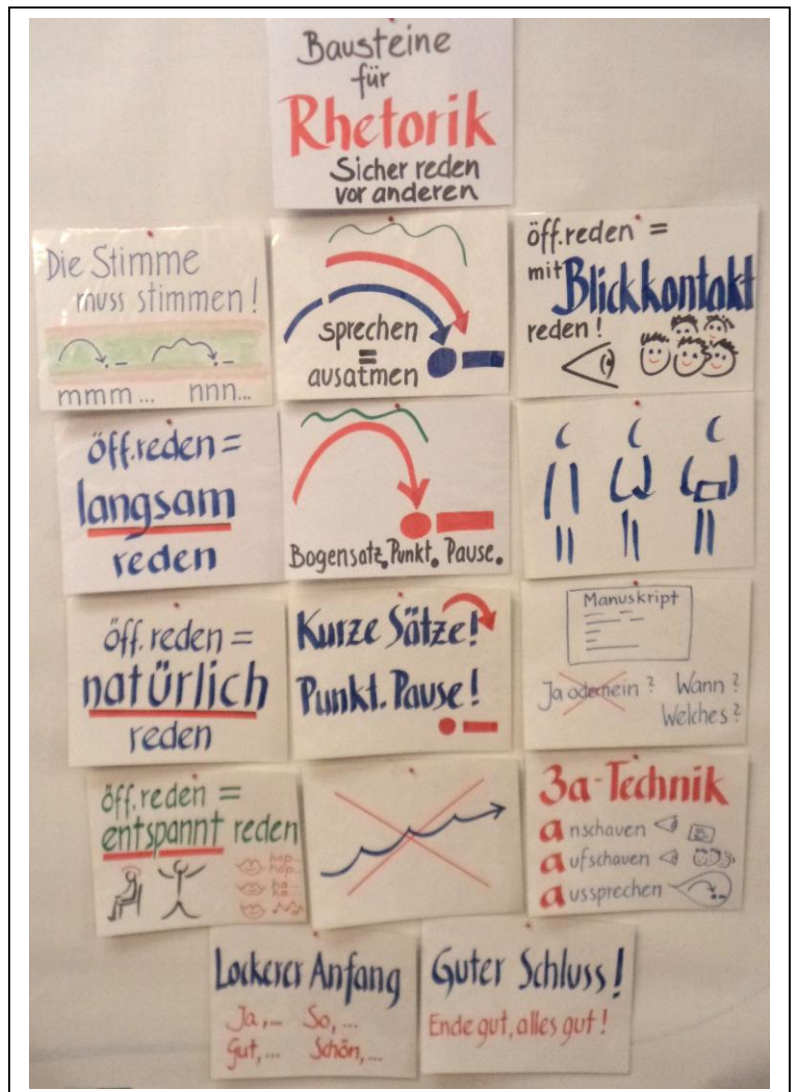 Bausteine
für
Rhetorik
Sicher reden
vor anderen
Die Stimme
muss stimmen!
mmm... nnn...
sprechen
=
ausatmen
öff.reden =
mit Blickkontakt
reden!
öff.reden =
langsam
reden
Bogensatz. Punkt. Pause.
öff.reden =
natürlich
reden
Kurze Sätze!
Punkt. Pause!
Manuskript
Ja oder nein? Wann?
Welches?
öff.reden =
entspannt reden
hop...
hop...
ha
ha...
3a-Technik
anschauen
aufschauen
aussprechen
Lockerer Anfang
Ja,... So,...
Gut,... Schön,...
Guter Schluss!
Ende gut, alles gut!